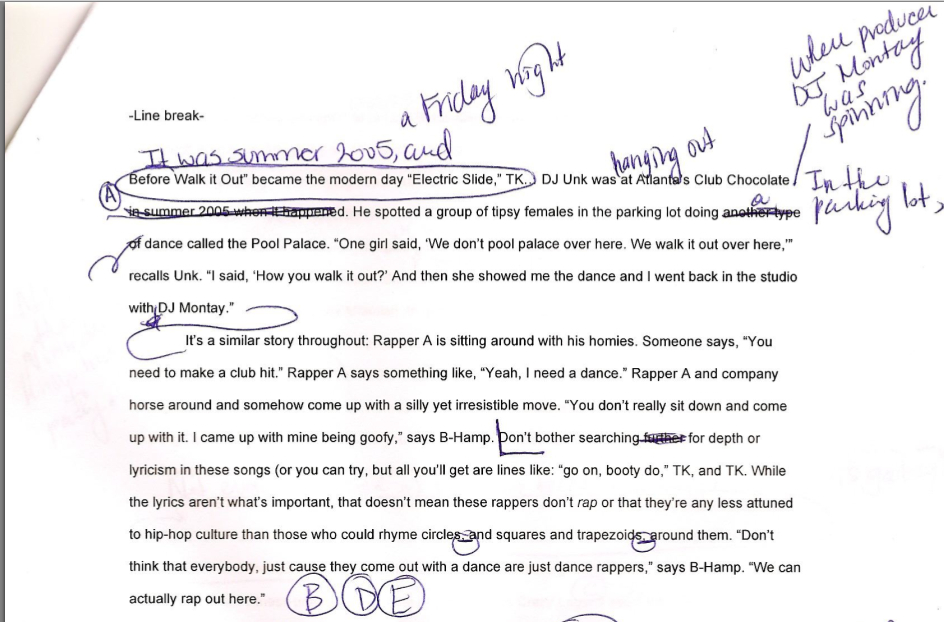 when producer
DJ Montay
was
spinning.
a Friday night
-Line break-
It was summer 2005, and
hanging out
A
Before Walk it Out” became the modern day “Electric Slide,” TK. DJ Unk was at Atlanta’s Club Chocolate
In the
parking lot,
in summer 2005 when it happened. He spotted a group of tipsy females in the parking lot doing another type
a
of dance called the Pool Palace. “One girl said, ‘We don’t pool palace over here. We walk it out over here,’”
recalls Unk. “I said, ‘How you walk it out?’ And then she showed me the dance and I went back in the studio
with DJ Montay.”
It’s a similar story throughout: Rapper A is sitting around with his homies. Someone says, “You
need to make a club hit.” Rapper A says something like, “Yeah, I need a dance.” Rapper A and company
horse around and somehow come up with a silly yet irresistible move. “You don’t really sit down and come
up with it. I came up with mine being goofy,” says B-Hamp. Don’t bother searching further for depth or
lyricism in these songs (or you can try, but all you’ll get are lines like: “go on, booty do,” TK, and TK. While
the lyrics aren’t what’s important, that doesn’t mean these rappers don’t rap or that they’re any less attuned
to hip-hop culture than those who could rhyme circles and squares and trapezoids around them. “Don’t
think that everybody, just cause they come out with a dance are just dance rappers,” says B-Hamp. “We can
actually rap out here.”
B D E